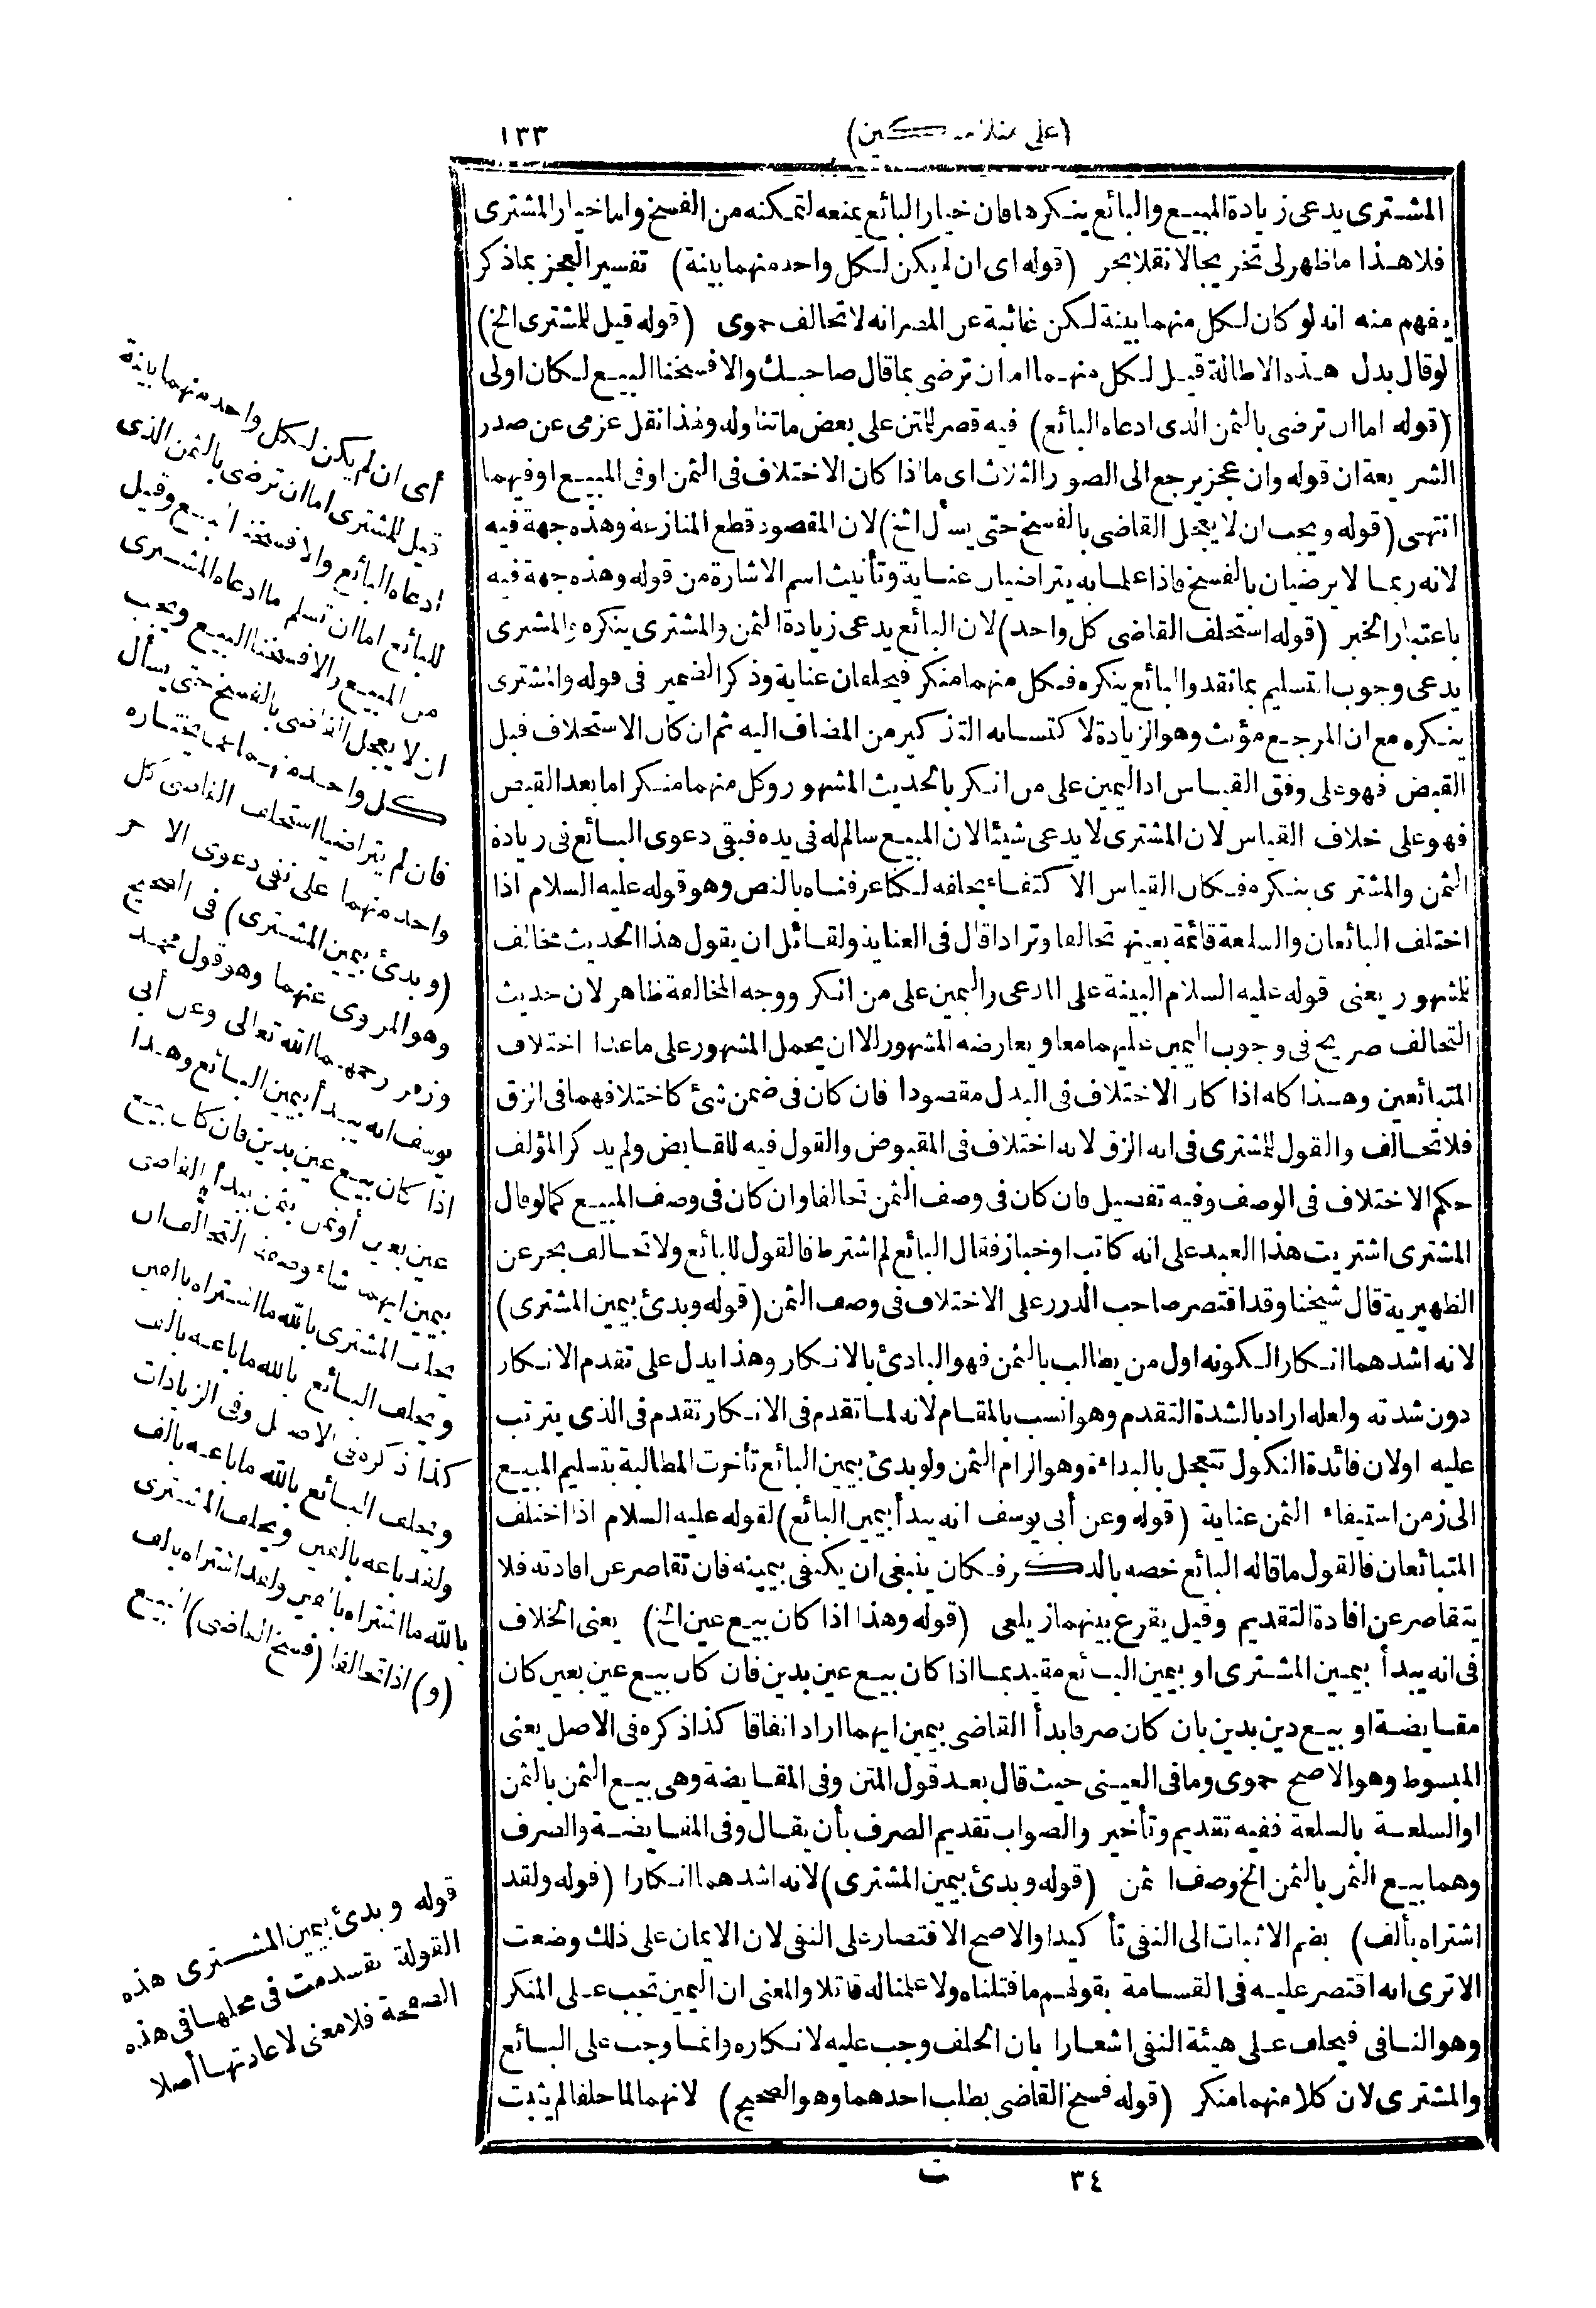 (على منلا مسكين) ١٣٣
المشترى يدعى زيادة المبيع والبائع ينكرها فان خيار البائع يمنعه لتمكنه من الفسخ واما خيار المشترى
فلا هذا ما ظهر لى تخريجا لا نقلا بحر (قوله اى ان لم يكن لكل واحد منهما بينة) تفسير العجز بما ذكر
يفهم منه انه لو كان لكل منهما بينة لكن غائبة عن المصر انه لا تحالف حموى (قوله قيل للمشترى الخ)
لو قال بدل هذه الاطالة قيل لكل منهما اما ان ترضى بما قال صاحبك والا فسخنا البيع لكان اولى
(قوله اما ان ترضى بالثمن الذى ادعاه البائع) فيه قصر للمتن على بعض ما تناوله ولهذا نقل عزمى عن صدر
الشريعة ان قوله وان عجز يرجع الى الصور الثلاث اى ما اذا كان الاختلاف فى الثمن او فى المبيع او فيهما
انتهى (قوله ويجب ان لا يعجل القاضى بالفسخ حتى يسأل الخ) لان المقصود قطع المنازعة وهذه جهة فيه
لانه ربما لا يرضيان بالفسخ فاذا علما به يتراضيان عناية وتأنيث اسم الاشارة من قوله وهذه جهة فيه
باعتبار الخبر (قوله استحلف القاضى كل واحد) لان البائع يدعى زيادة الثمن والمشترى ينكره والمشترى
يدعى وجوب التسليم بما نقد والبائع ينكره فكل منهما منكر فيحلفان عناية وذكر الضمير فى قوله والمشترى
ينكره مع ان المرجع مؤنث وهو الزيادة لاكتسابه التذكير من المضاف اليه ثم ان كان الاستحلاف قبل
القبض فهو على وفق القياس اذ اليمين على من انكر بالحديث المشهور وكل منهما منكر اما بعد القبض
فهو على خلاف القياس لان المشترى لا يدعى شيئا لان المبيع سالم له فى يده فبقى دعوى البائع فى زيادة
الثمن والمشترى ينكره فكان القياس الاكتفاء بحلفه لكنا عرفناه بالنص وهو قوله عليه السلام اذا
اختلف البائعان والسلعة قائمة بعينها تحالفا وترادا قال فى العناية ولقائل ان يقول هذا الحديث مخالف
للمشهور يعنى قوله عليه السلام البينة على المدعى واليمين على من انكر ووجه المخالفة ظاهر لان حديث
التحالف صريح فى وجوب اليمين عليهما معا ويعارضه المشهور الا ان يحمل المشهور على ما عدا اختلاف
المتبائعين وهذا كله اذا كان الاختلاف فى البدل مقصودا فان كان فى ضمن شئ كاختلافهما فى الزق
فلا تحالف والقول للمشترى فى انه الزق لانه اختلاف فى المقبوض والقول فيه للقابض ولم يذكر المؤلف
حكم الاختلاف فى الوصف وفيه تفصيل فان كان فى وصف الثمن تحالفا وان كان فى وصف المبيع كما لو قال
المشترى اشتريت هذا العبد على انه كاتب او خباز فقال البائع لم اشترط فالقول للبائع ولا تحالف بحر عن
الظهيرية قال شيخنا وقد اقتصر صاحب الدرر على الاختلاف فى وصف الثمن (قوله وبدئ بيمين المشترى)
لانه اشدهما انكارا لكونه اول من يطالب بالثمن فهو البادئ بالانكار وهذا يدل على تقدم الانكار
دون شدته ولعله اراد بالشدة التقدم وهو انسب بالمقام لانه لما تقدم فى الانكار تقدم فى الذى يترتب
عليه او لان فائدة النكول تتعجل بالبداءة وهو الزام الثمن ولو بدئ بيمين البائع تأخرت المطالبة بتسليم المبيع
الى زمن استيفاء الثمن عناية (قوله وعن أبى يوسف انه يبدأ بيمين البائع) لقوله عليه السلام اذا اختلف
المتبائعان فالقول ما قاله البائع خصه بالذكر فكان ينبغى ان يكفى بيمينه فان تقاصر عن افادته فلا
يتقاصر عن افادة التقديم وقيل يقرع بينهما زيلعى (قوله وهذا اذا كان بيع عين الخ) يعنى الخلاف
فى انه يبدأ بيمين المشترى او بيمين البائع مقيد بما اذا كان بيع عين بدين فان كان بيع عين بعين كان
مقايضة او بيع دين بدين بان كان صرفا بدأ القاضى بيمين ايهما اراد اتفاقا كذا ذكره فى الاصل يعنى
المبسوط وهو الاصح حموى وما فى العينى حيث قال بعد قول المتن وفى المقايضة وهى بيع الثمن بالثمن
او السلعة بالسلعة ففيه تقديم وتأخير والصواب تقديم الصرف بأن يقال وفى المقايضة والصرف
وهما بيع الثمن بالثمن الخ وصف الثمن (قوله وبدئ بيمين المشترى) لانه اشدهما انكارا (قوله ولقد
اشتراه بألف) بضم الاثبات الى النفى تأكيدا والاصح الاقتصار على النفى لان الايمان على ذلك وضعت
الا ترى انه اقتصر عليه فى القسامة بقولهم ما قتلناه ولا علمنا له قاتلا والمعنى ان اليمين تجب على المنكر
وهو النافى فيحلف على هيئة النفى اشعارا بان الحلف وجب عليه لانكاره وانما وجب على البائع
والمشترى لان كلا منهما منكر (قوله فسخ القاضى بطلب احدهما وهو الصحيح) لانهما لما حلفا لم يثبت
أى ان لم يكن لكل واحد منهما بينة
قيل للمشترى اما ان ترضى بالثمن الذى
ادعاه البائع والا فسخنا البيع وقيل
للبائع اما ان تسلم ما ادعاه المشترى
من المبيع والا فسخنا البيع ويجب
ان لا يعجل القاضى بالفسخ حتى يسأل
كل واحد منهما عما يختاره
فان لم يتراضيا استحلف القاضى كل
واحد منهما على نفى دعوى الآخر
(وبدئ بيمين المشترى) فى الصحيح
وهو المروى عنهما وهو قول محمد
وزفر رحمهما الله تعالى وعن أبى
يوسف انه يبدأ بيمين البائع وهذا
اذا كان بيع عين بدين فان كان بيع
عين بعين أو ثمن بثمن يبدأ القاضى
بيمين ايهما شاء وصفة التحالف ان
يحلف المشترى بالله ما اشتراه بالفين
ويحلف البائع بالله ما باعه بالف
كذا ذكره فى الاصل وفى الزيادات
ويحلف البائع بالله ما باعه بالف
ولقد باعه بالفين ويحلف المشترى
بالله ما اشتراه بالفين ولقد اشتراه بالف
(و) اذا تحالفا (فسخ القاضى) البيع
قوله وبدئ بيمين المشترى هذه
القولة تقدمت فى محلها فى هذه
الصفحة فلا معنى لاعادتها أصلا
٣٤ ت